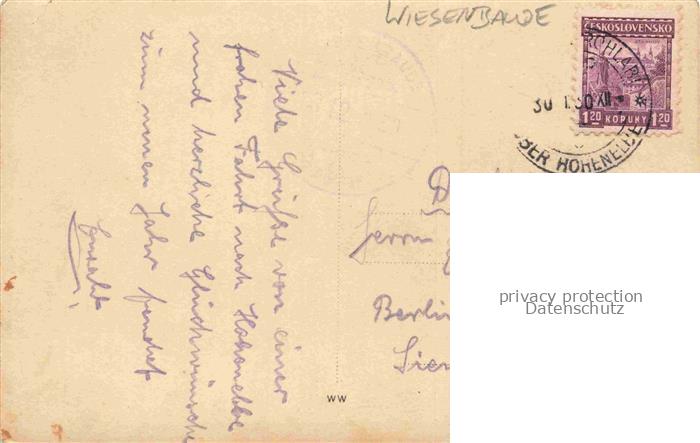 WIESENBAUDE
ČESKOSLOVENSKO
30 I 30 XII
1.20 KORUNY 1.20
OBER HOHENELBE
Viele Grüße von einer
frohen Fahrt nach Hohenelbe
und herzliche Glückwünsche
zum neuen Jahr sendet
Ewald
Herrn
Berlin
Sie
WW
privacy protection
Datenschutz